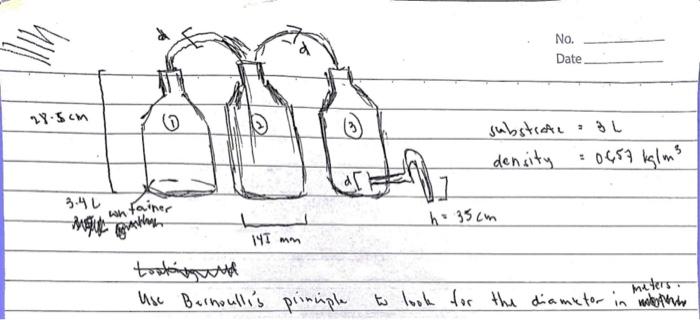 No.
Date
d
d
28.5 cm
①
②
③
substrate = 3 L
density = 0.657 kg/m³
d [
]
3.4 L
container
h = 35 cm
141 mm
Use Bernoulli's principle to look for the diameter in meters.